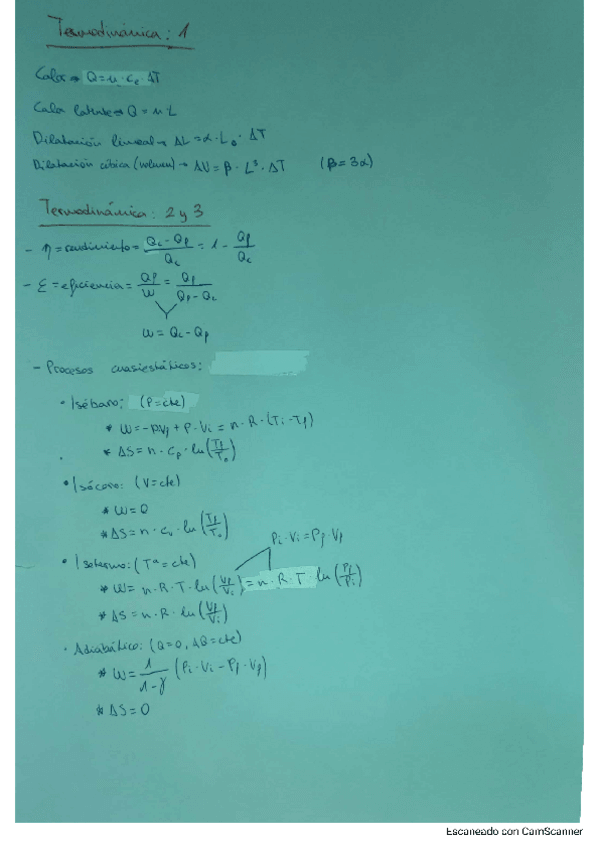 Termodinámica: 1
Calor → Q = m · Ce · ΔT
Calor latente → Q = m · L
Dilatación lineal → ΔL = α · L₀ · ΔT
Dilatación cúbica (volumen) → ΔV = β · L³ · ΔT (β = 3α)
Termodinámica: 2 y 3
- η = rendimiento = (Qc - Qf)/Qc = 1 - Qf/Qc
- ε = eficiencia = Qf/W = Qf/(Qf - Qc)
W = Qc - Qf
- Procesos cuasiestáticos:
· Isóbaro: (P = cte)
* W = -P·Vf + P·Vi = n·R·(Ti - Tf)
* ΔS = n · Cp · ln(Tf/To)
· Isócoro: (V = cte)
* W = 0
* ΔS = n · Cv · ln(Tf/To)
Pi·Vi = Pf·Vf
· Isotermo: (Tª = cte)
* W = n·R·T·ln(Vf/Vi) = n·R·T·ln(Pf/Vi)
* ΔS = n·R·ln(Vf/Vi)
· Adiabático: (Q = 0, ΔQ = cte)
* W = 1/(1-γ) (Pi·Vi - Pf·Vf)
* ΔS = 0
Escaneado con CamScanner